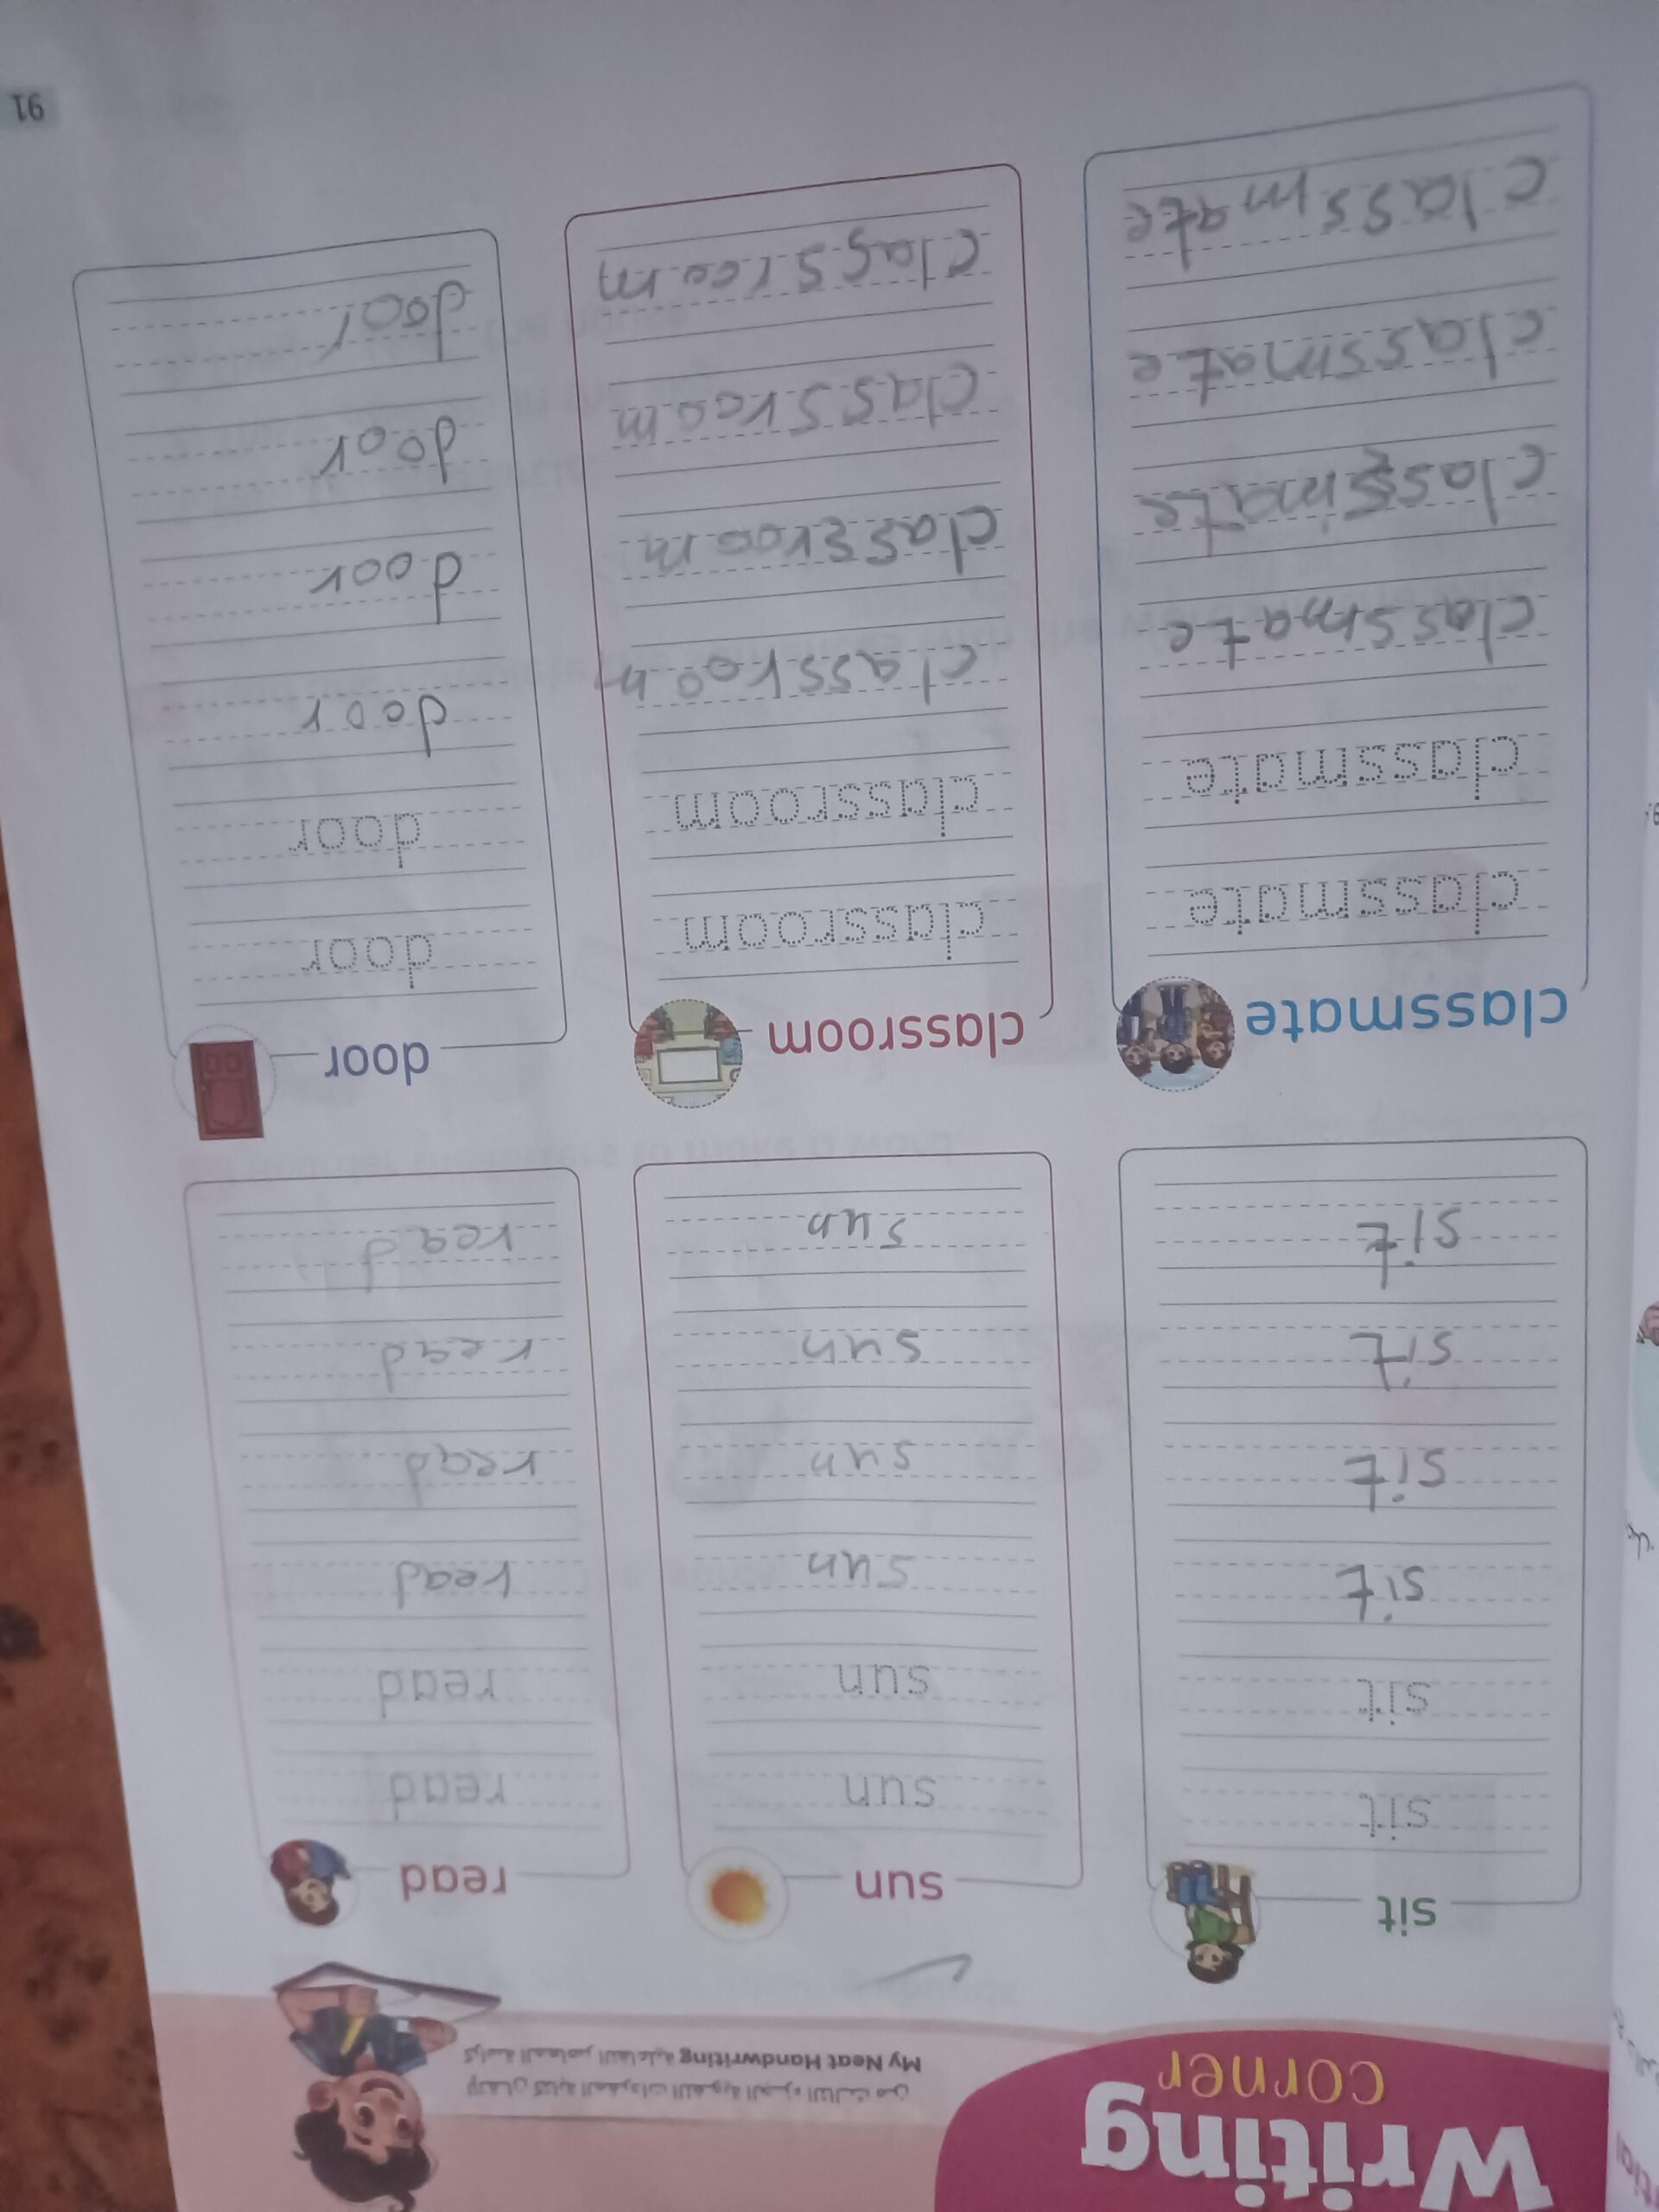 Writing
corner
لإتقان كتابة المفردات اللغوية الجزء الثالث من
كراسة المعاصر التفاعلية My Neat Handwriting
sit
sit
sit
sit
sit
sit
sit
sun
sun
sun
sun
sun
sun
sun
read
read
read
read
read
read
read
classmate
classmate
classmate
classmate
classmate
classmate
classmate
classroom
classroom
classroom
classroom
classroom
classroom
classroom
door
door
door
door
door
door
door
91